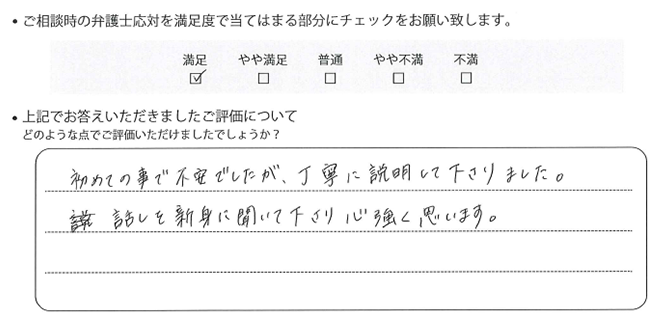 • ご相談時の弁護士応対を満足度で当てはまる部分にチェックをお願い致します。
満足 やや満足 普通 やや不満 不満
☑ ☐ ☐ ☐ ☐
• 上記でお答えいただきましたご評価について
どのような点でご評価いただけましたでしょうか?
初めての事で不安でしたが、丁寧に説明して下さりました。
話しを新身に聞いて下さり心強く思います。